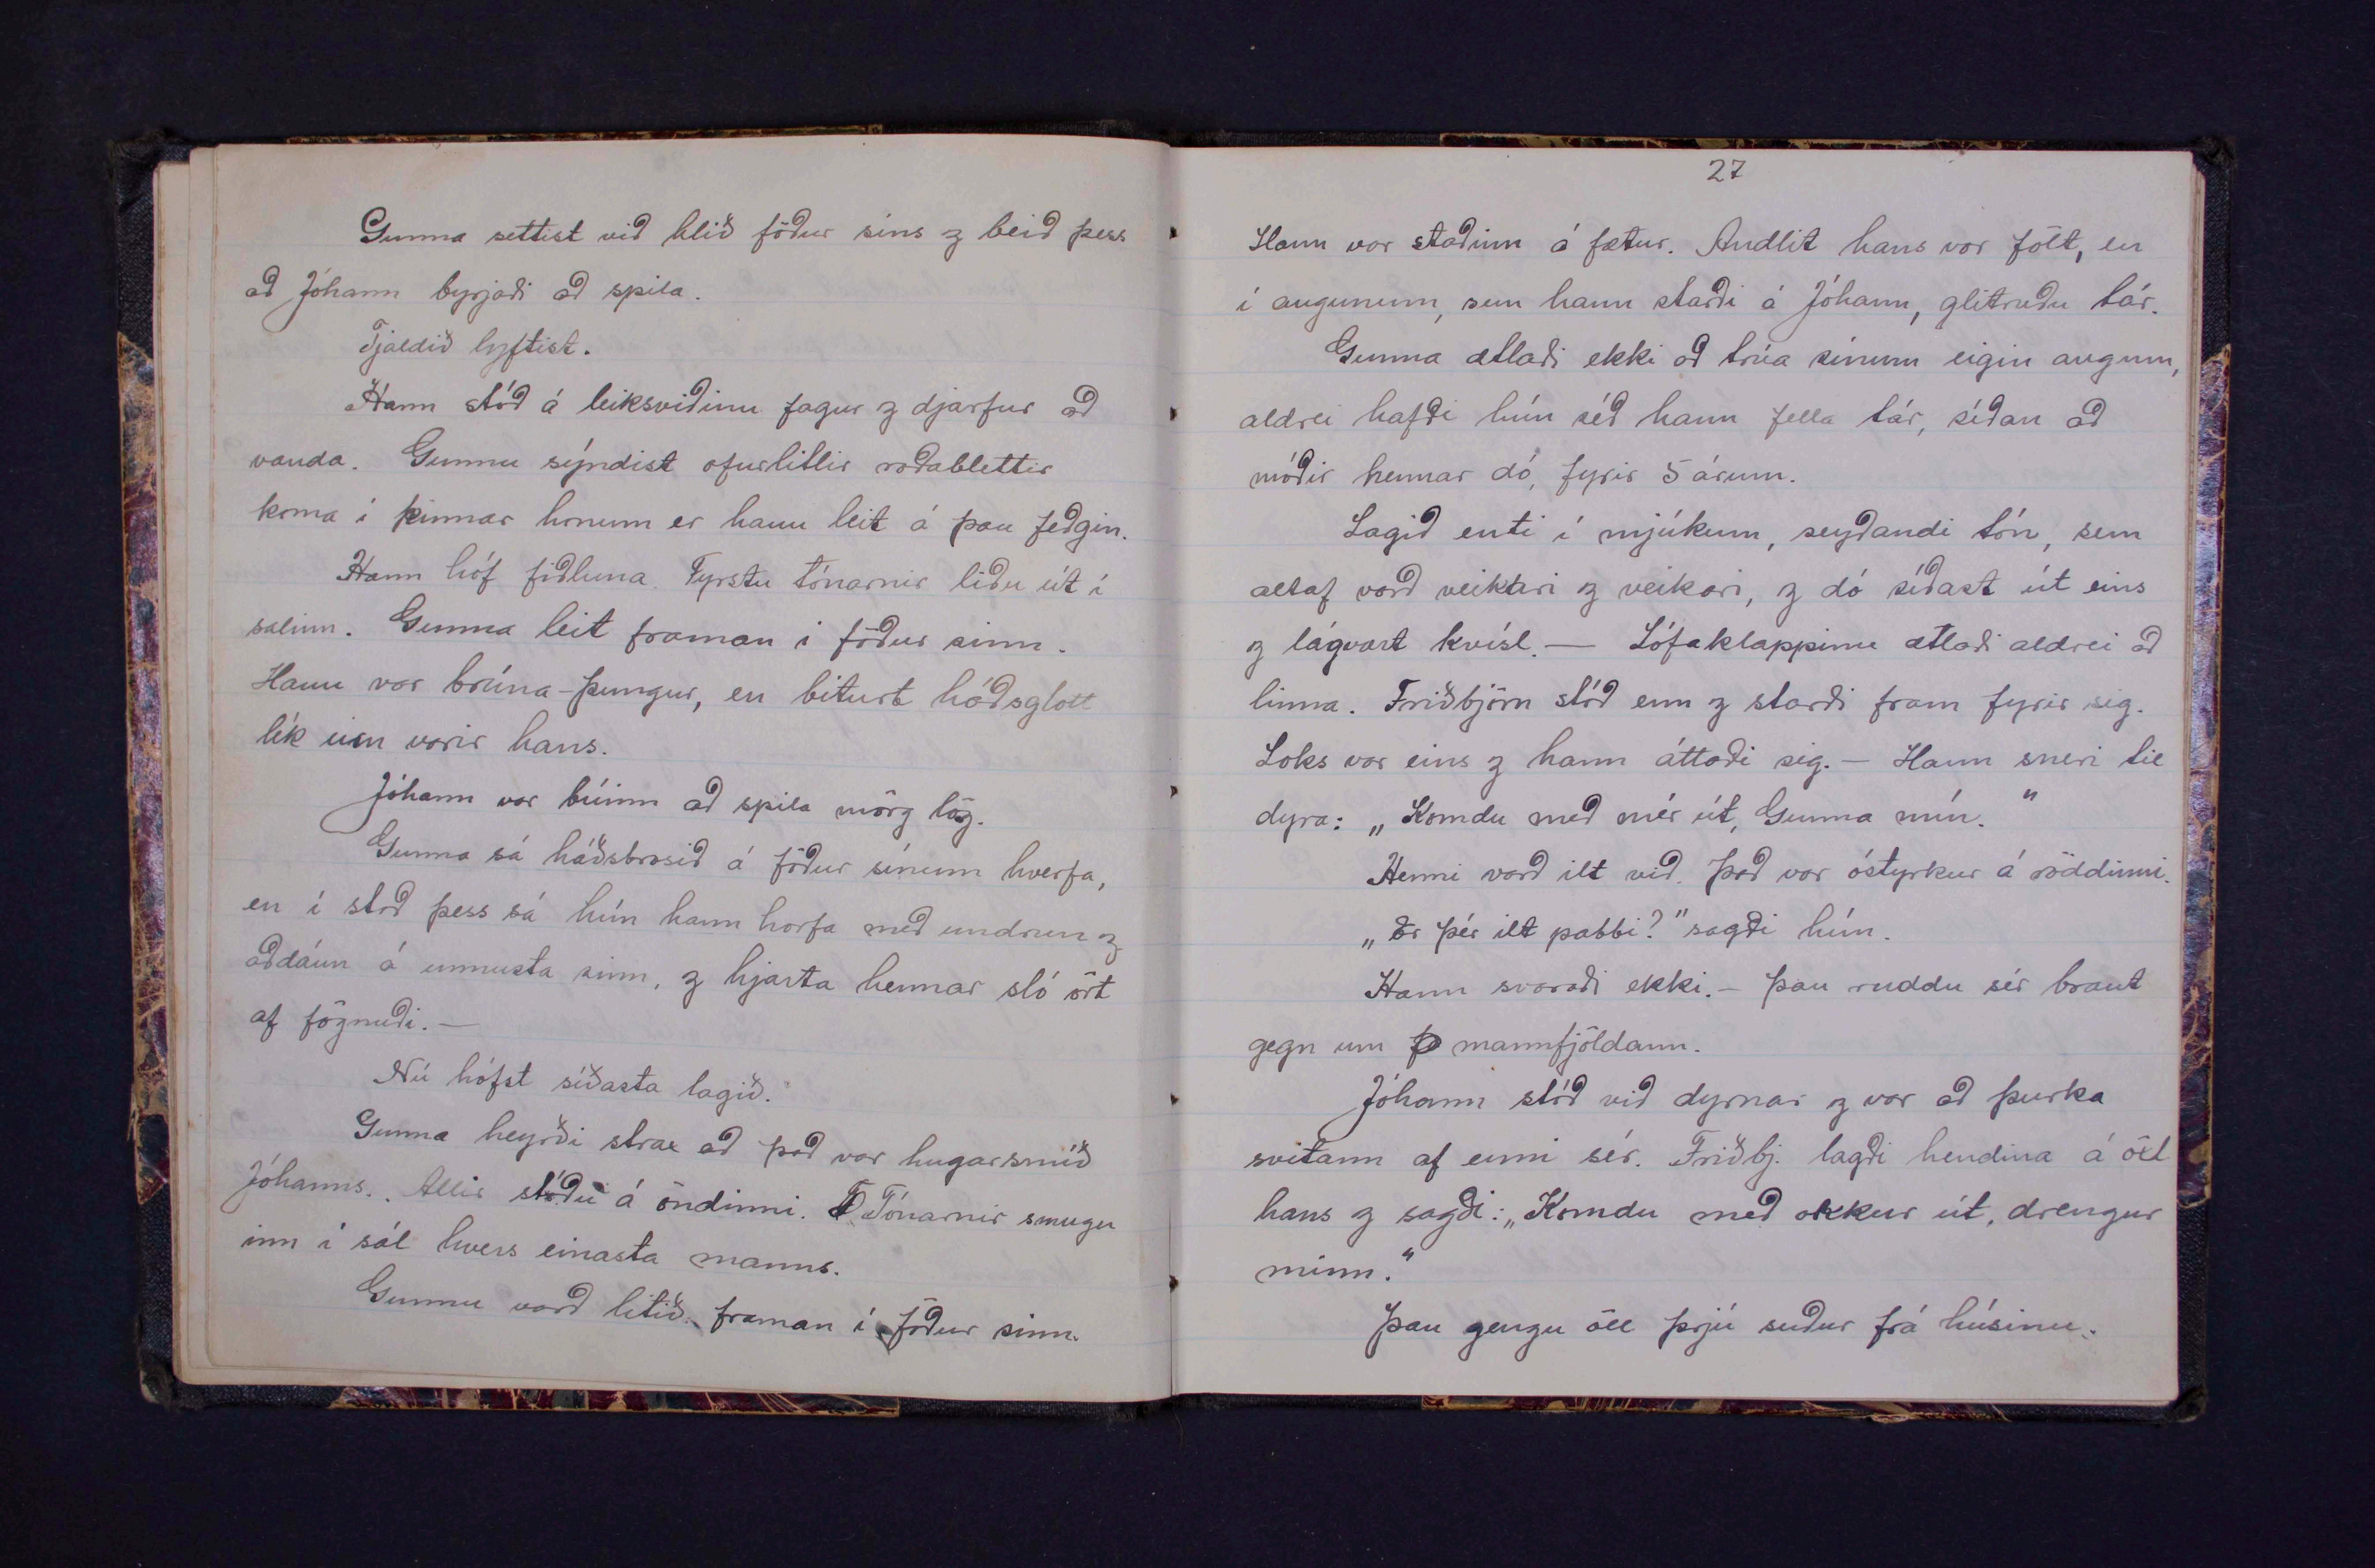 Gunna settist við hlið föður síns & beið þess
að Jóhann byrjaði að spila.
Tjaldið lyftist.
Hann stóð á leiksviðinu fagur & djarfur að
vanda. Gunnu sýndist ofurlitlir roðablettir
koma í kinnar honum er hann leit á þau feðgin.
Hann hóf fiðluna. Fyrstu tónarnir liðu út í
salinn. Gunna leit framan í föður sinn.
Hann var brúna-þungur, en biturt háðsglott
lék um varir hans.
Jóhann var búinn að spila mörg lög.
Gunna sá háðsbrosið á föður sínum hverfa,
en í stað þess sá hún hann horfa með undrun &
aðdáun á unnusta sinn, & hjarta hennar sló ört
af fögnuði. —
Nú hófst síðasta lagið.
Gunna heyrði strax að það var hugarsmíð
Jóhanns. Allir stóðu á öndinni. Tónarnir smugu
inn í sál hvers einasta manns.
Gunnu varð litið framan í föður sinn.
27
Hann var staðinn á fætur. Andlit hans var fölt, en
í augunum, sem hann starði á Jóhann, glitruðu tár.
Gunna ætlaði ekki að trúa sínum eigin augum,
aldrei hafði hún séð hann fella tár, síðan að
móðir hennar dó, fyrir 5 árum.
Lagið enti í mjúkum, seyðandi tón, sem
altaf varð veikari & veikari, & dó síðast út eins
& lágvært kvísl. — Lófaklappinu ætlaði aldrei að
linna. Friðbjörn stóð enn & starði fram fyrir sig.
Loks var eins & hann áttaði sig. — Hann sneri til
dyra: „Komdu með mér út, Gunna mín."
Henni varð ilt við. Það var óstyrkur á röddinni.
„Er þér ilt pabbi?" sagði hún.
Hann svaraði ekki. — Þau ruddu sér braut
gegn um mannfjöldann.
Jóhann stóð við dyrnar & var að þurka
svitann af enni sér. Friðbj. lagði hendina á öxl
hans & sagði: „Komdu með okkur út, drengur
minn."
Þau gengu öll þrjú suður frá húsinu.